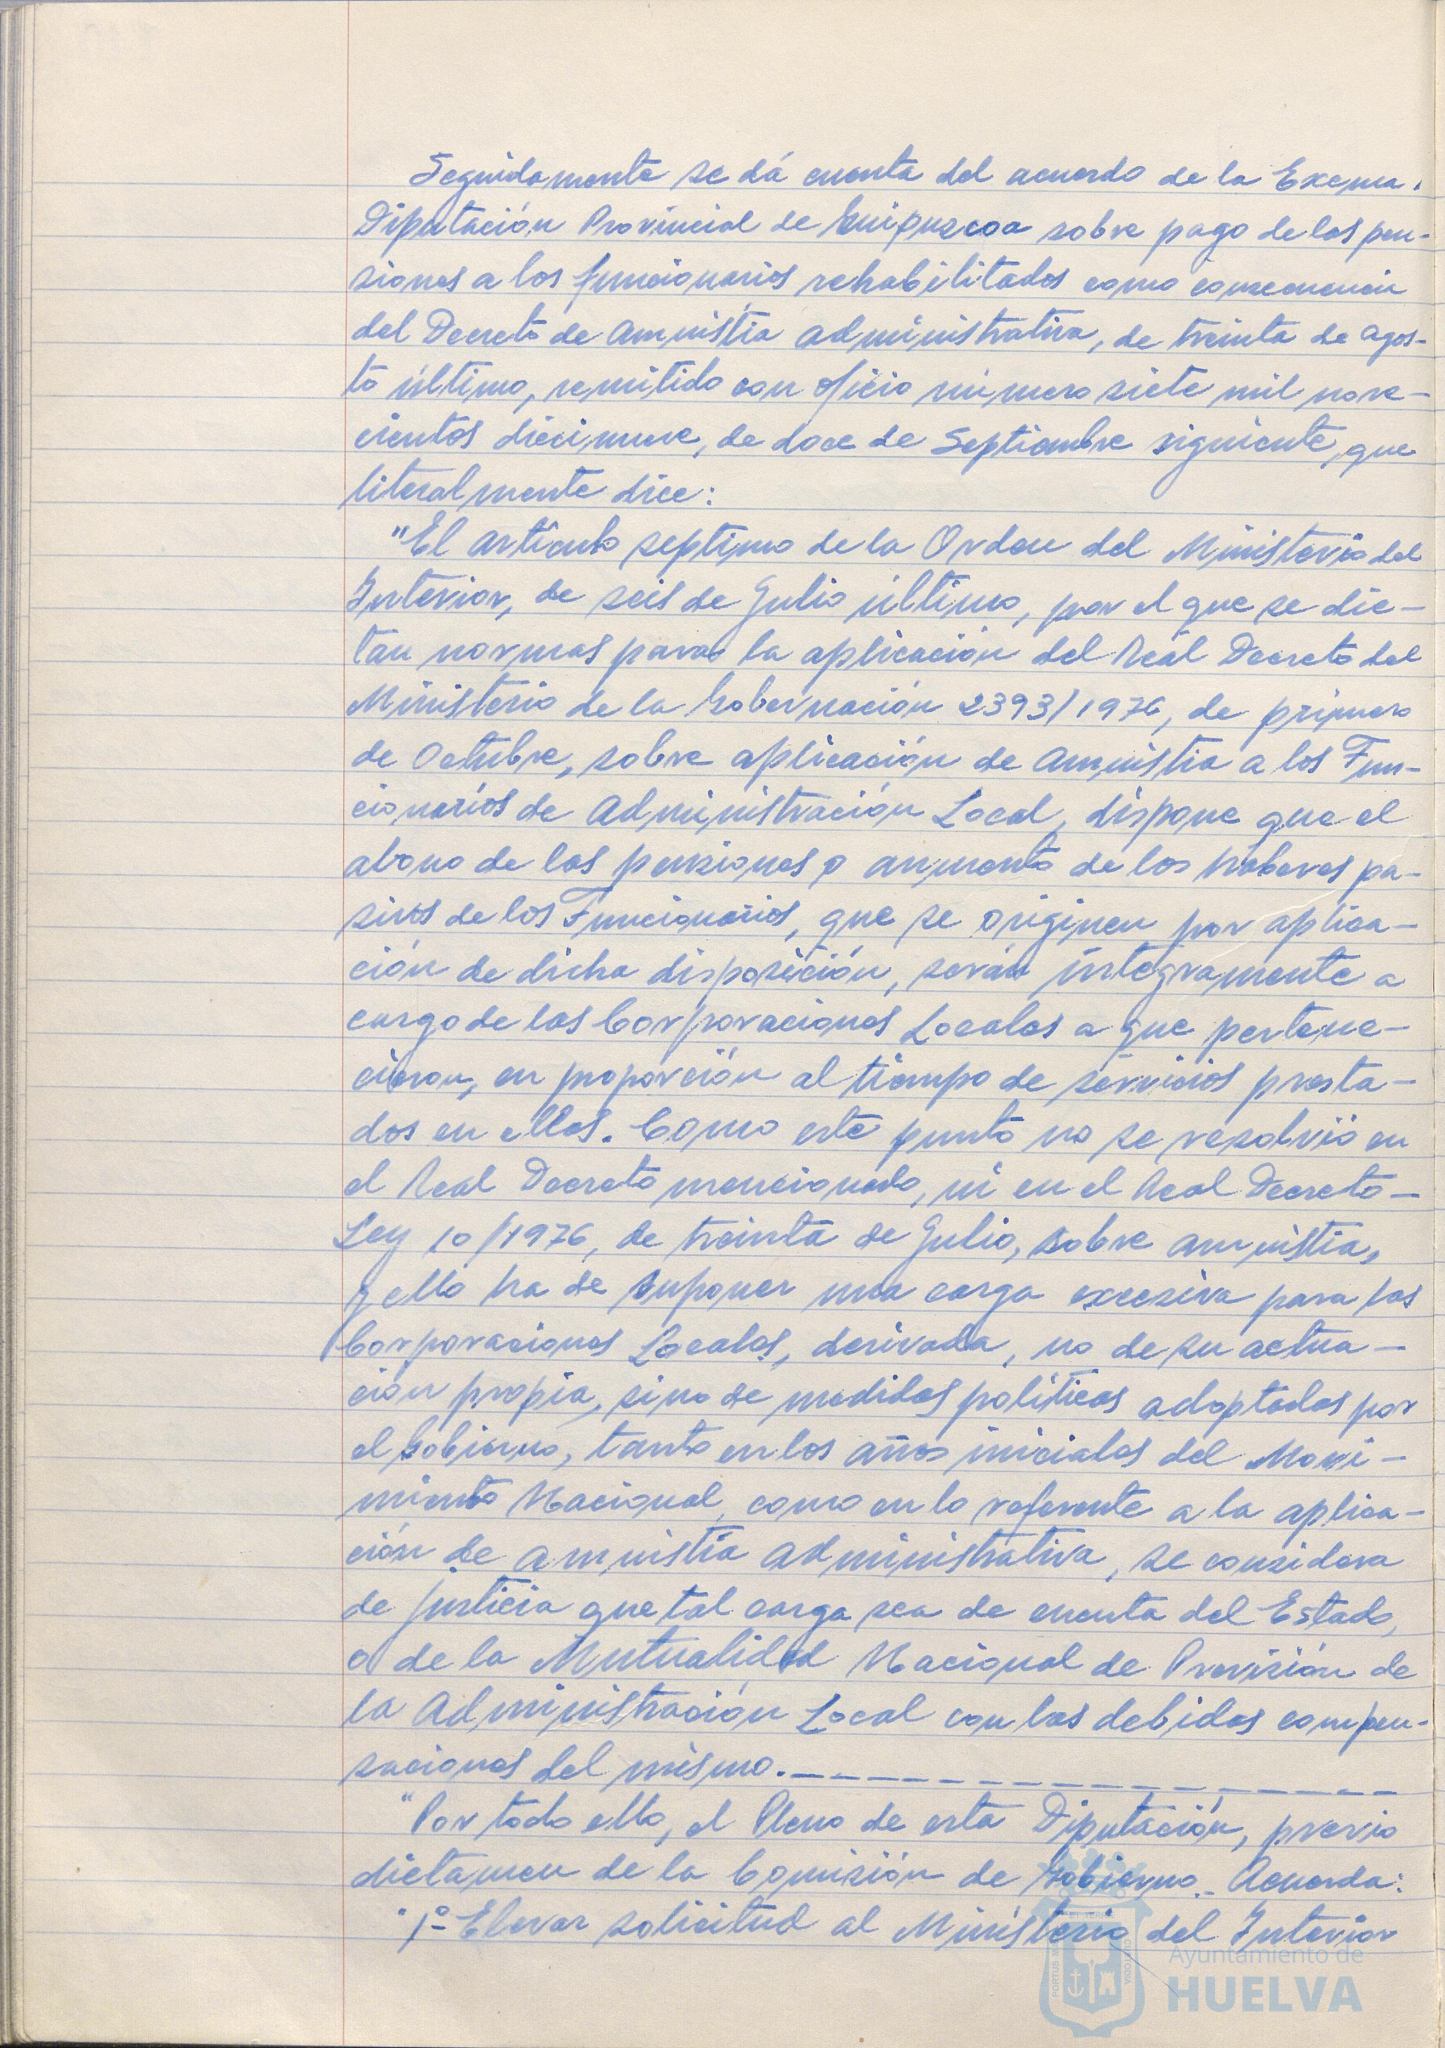 Seguidamente se dá cuenta del acuerdo de la Excma.
Diputación Provincial de Guipuzcoa sobre pago de las pen-
siones a los funcionarios rehabilitados como consecuencia
del Decreto de Amnistía Administrativa, de treinta de agos-
to último, remitido con oficio número siete mil nove-
cientos diecinueve, de doce de Septiembre siguiente, que
literalmente dice:
"El artículo septimo de la Orden del Ministerio del
Interior, de seis de Julio último, por el que se dic-
tan normas para la aplicación del Real Decreto del
Ministerio de la Gobernación 2393/1976, de primero
de Octubre, sobre aplicación de amnistia a los Fun-
cionarios de Administración Local, dispone que el
abono de las pensiones o aumento de los haberes pa-
sivos de los Funcionarios, que se originen por aplica-
ción de dicha disposición, serán integramente a
cargo de las Corporaciones Locales a que pertene-
cieron, en proporción al tiempo de servicios presta-
dos en ellas. Como este punto no se resolvió en
el Real Decreto mencionado, ni en el Real Decreto-
Ley 10/1976, de treinta de Julio, sobre amnistia,
y ello ha de suponer una carga excesiva para las
Corporaciones Locales, derivada, no de su actua-
ción propia, sino de medidas políticas adoptadas por
el Gobierno, tanto en los años iniciales del Movi-
miento Nacional, como en lo referente a la aplica-
ción de amnistía administrativa, se considera
de justicia que tal carga sea de cuenta del Estado,
o de la Mutualidad Nacional de Previsión de
la Administración Local con las debidas compen-
saciones del mismo.
"Por todo ello, el Pleno de esta Diputación, previo
dictamen de la Comisión de Gobierno, Acuerda:
"1º- Elevar solicitud al Ministerio del Interior
Ayuntamiento de
HUELVA